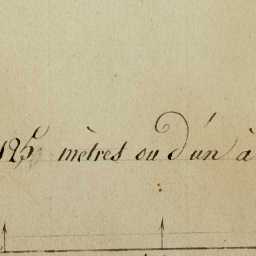 125 mètres ou d'un à